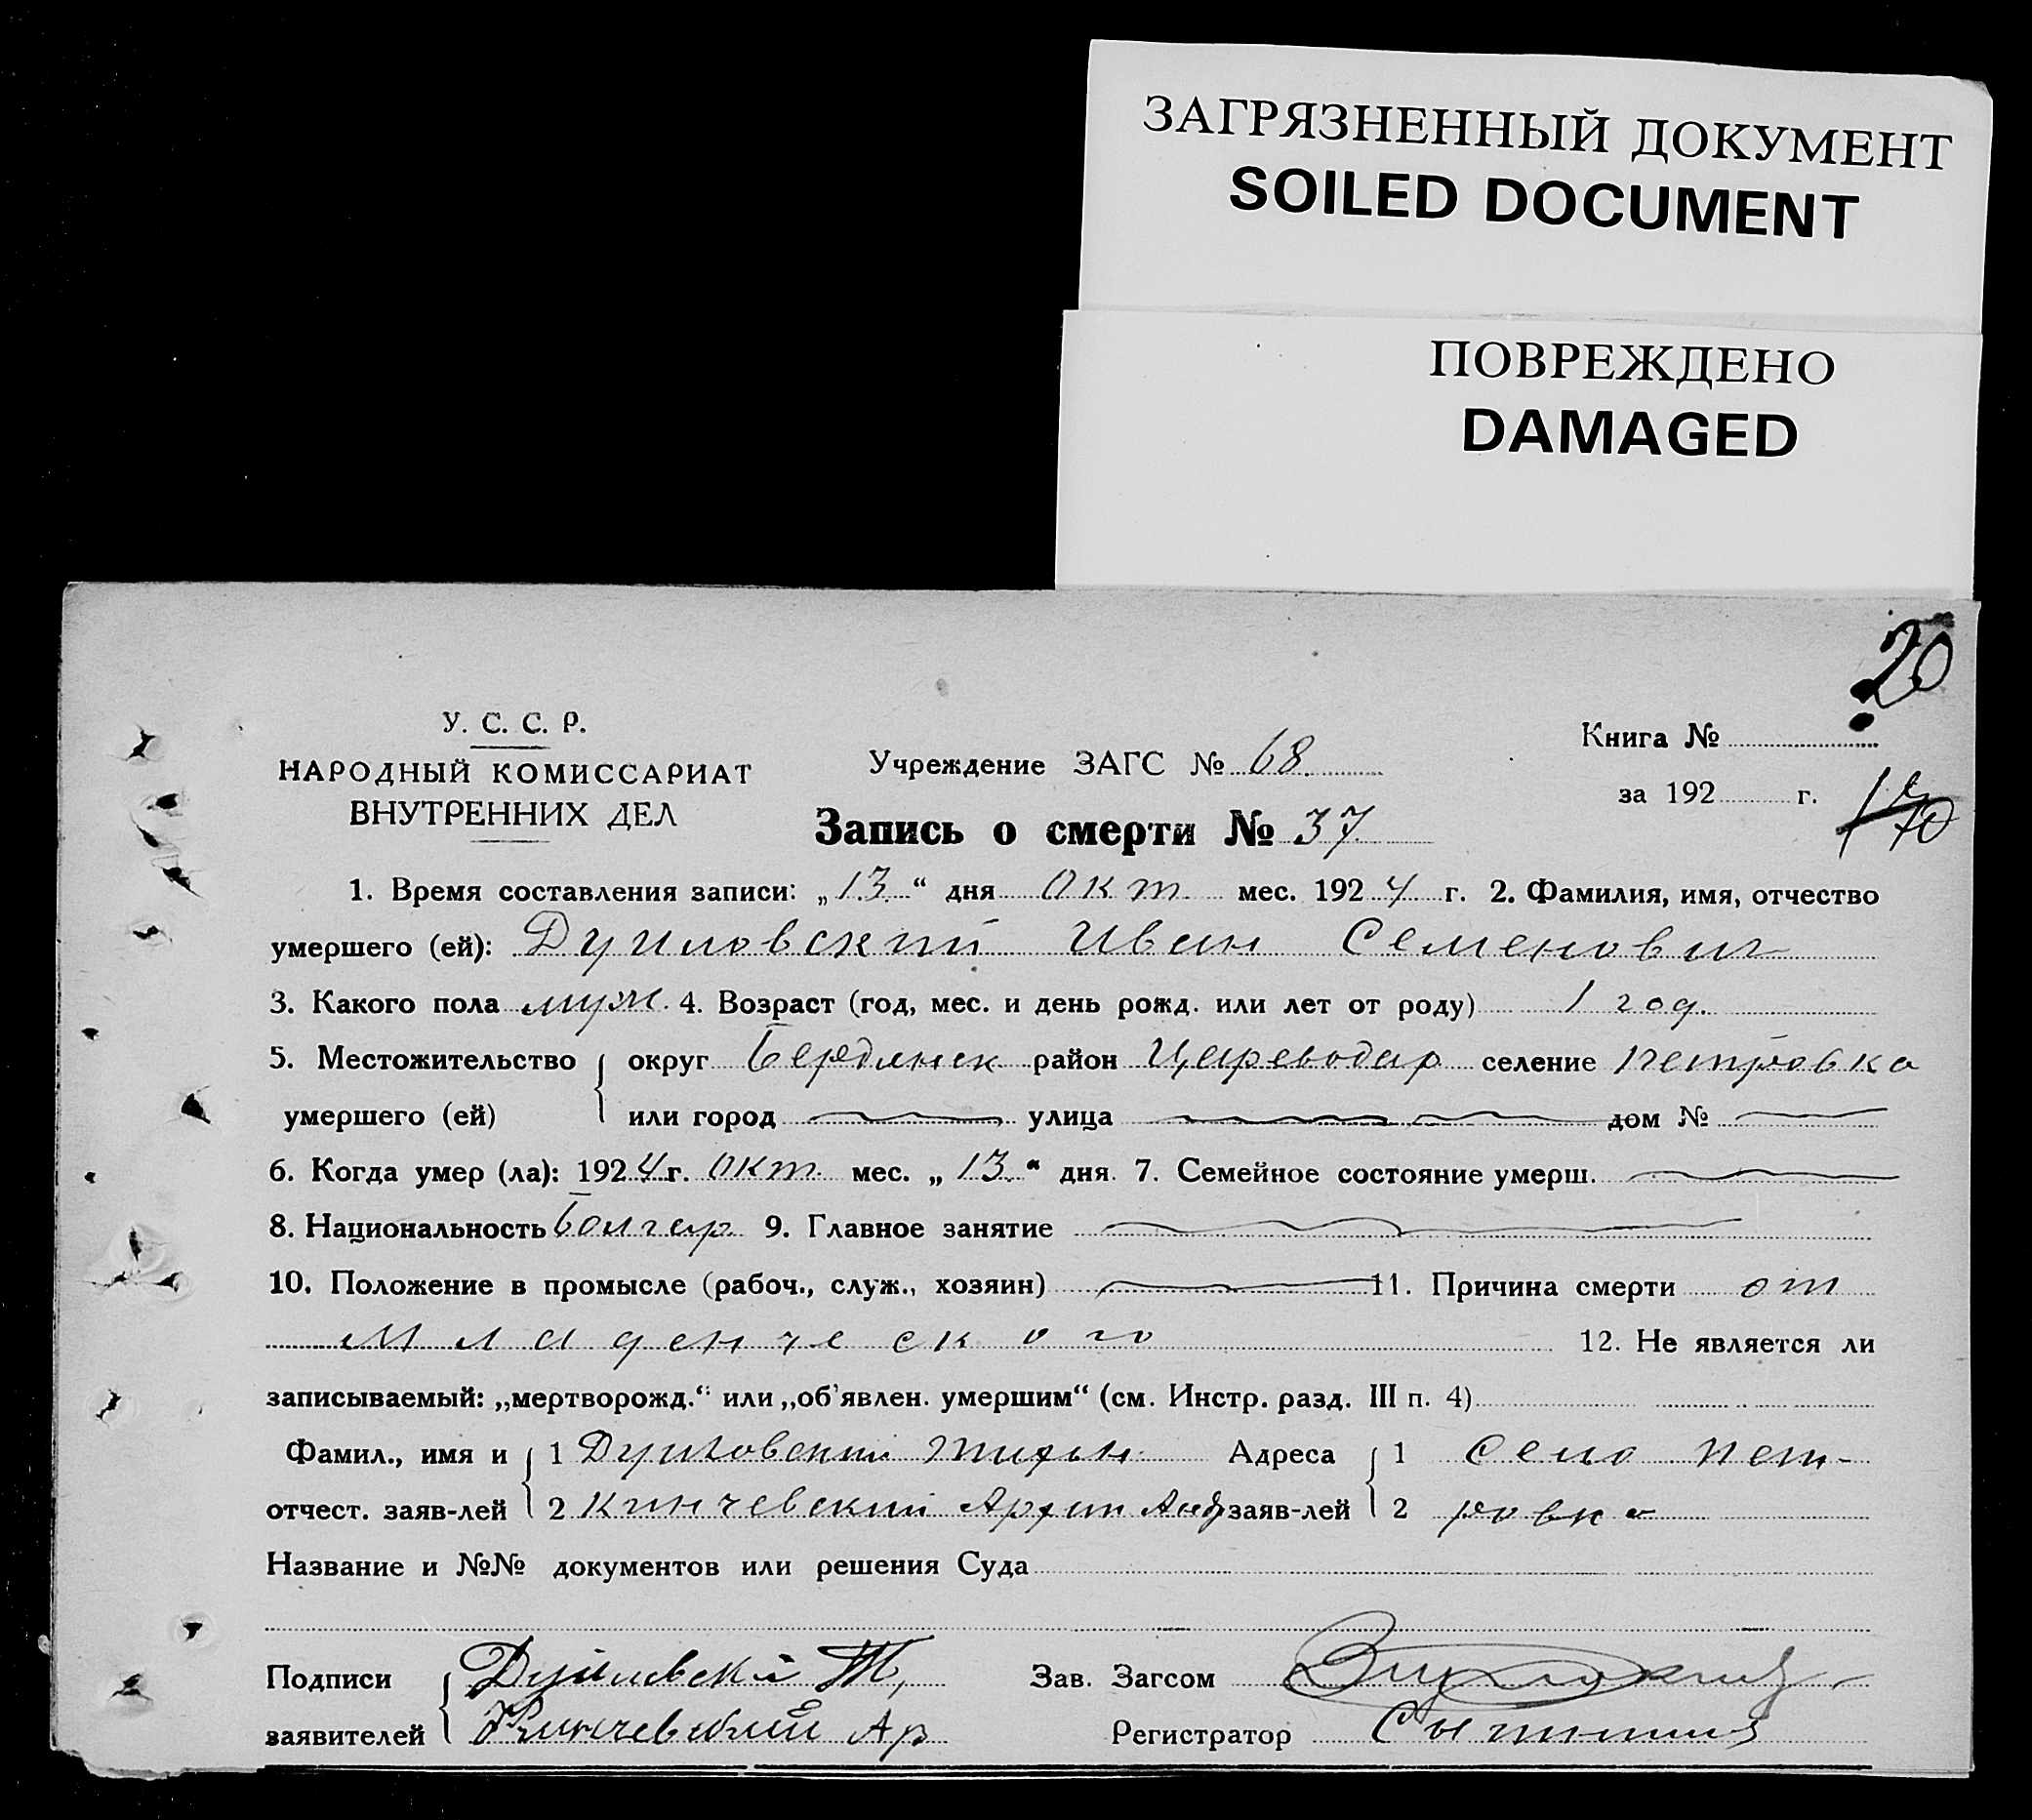 ЗАГРЯЗНЕННЫЙ ДОКУМЕНТ
SOILED DOCUMENT
ПОВРЕЖДЕНО
DAMAGED
20
У. С. С. Р.
НАРОДНЫЙ КОМИССАРИАТ
ВНУТРЕННИХ ДЕЛ
Учреждение ЗАГС № 68
Книга №
за 192 г.
Запись о смерти № 37
1. Время составления записи: „13“ дня Окт мес. 1924 г. 2. Фамилия, имя, отчество
умершего (ей): Душловский Иван Семенович
3. Какого пола муж. 4. Возраст (год, мес. и день рожд. или лет от роду) 1 год.
5. Местожительство округ Бердянск район Цареводар селение Петровка
умершего (ей) или город улица дом №
6. Когда умер (ла): 1924 г. Окт мес. „13“ дня. 7. Семейное состояние умерш.
8. Национальность болгар. 9. Главное занятие
10. Положение в промысле (рабоч., служ., хозяин) 11. Причина смерти от
Младенческого 12. Не является ли
записываемый: „мертворожд.“ или „об'явлен. умершим“ (см. Инстр. разд. III п. 4)
Фамил., имя и 1 Тифон Адреса 1 Село Пет-
отчест. заяв-лей 2 Кинчевский Архип Анд заяв-лей 2 ровка
Название и №№ документов или решения Суда
Подписи Зав. Загсом
заявителей Кинчевский Ар Регистратор